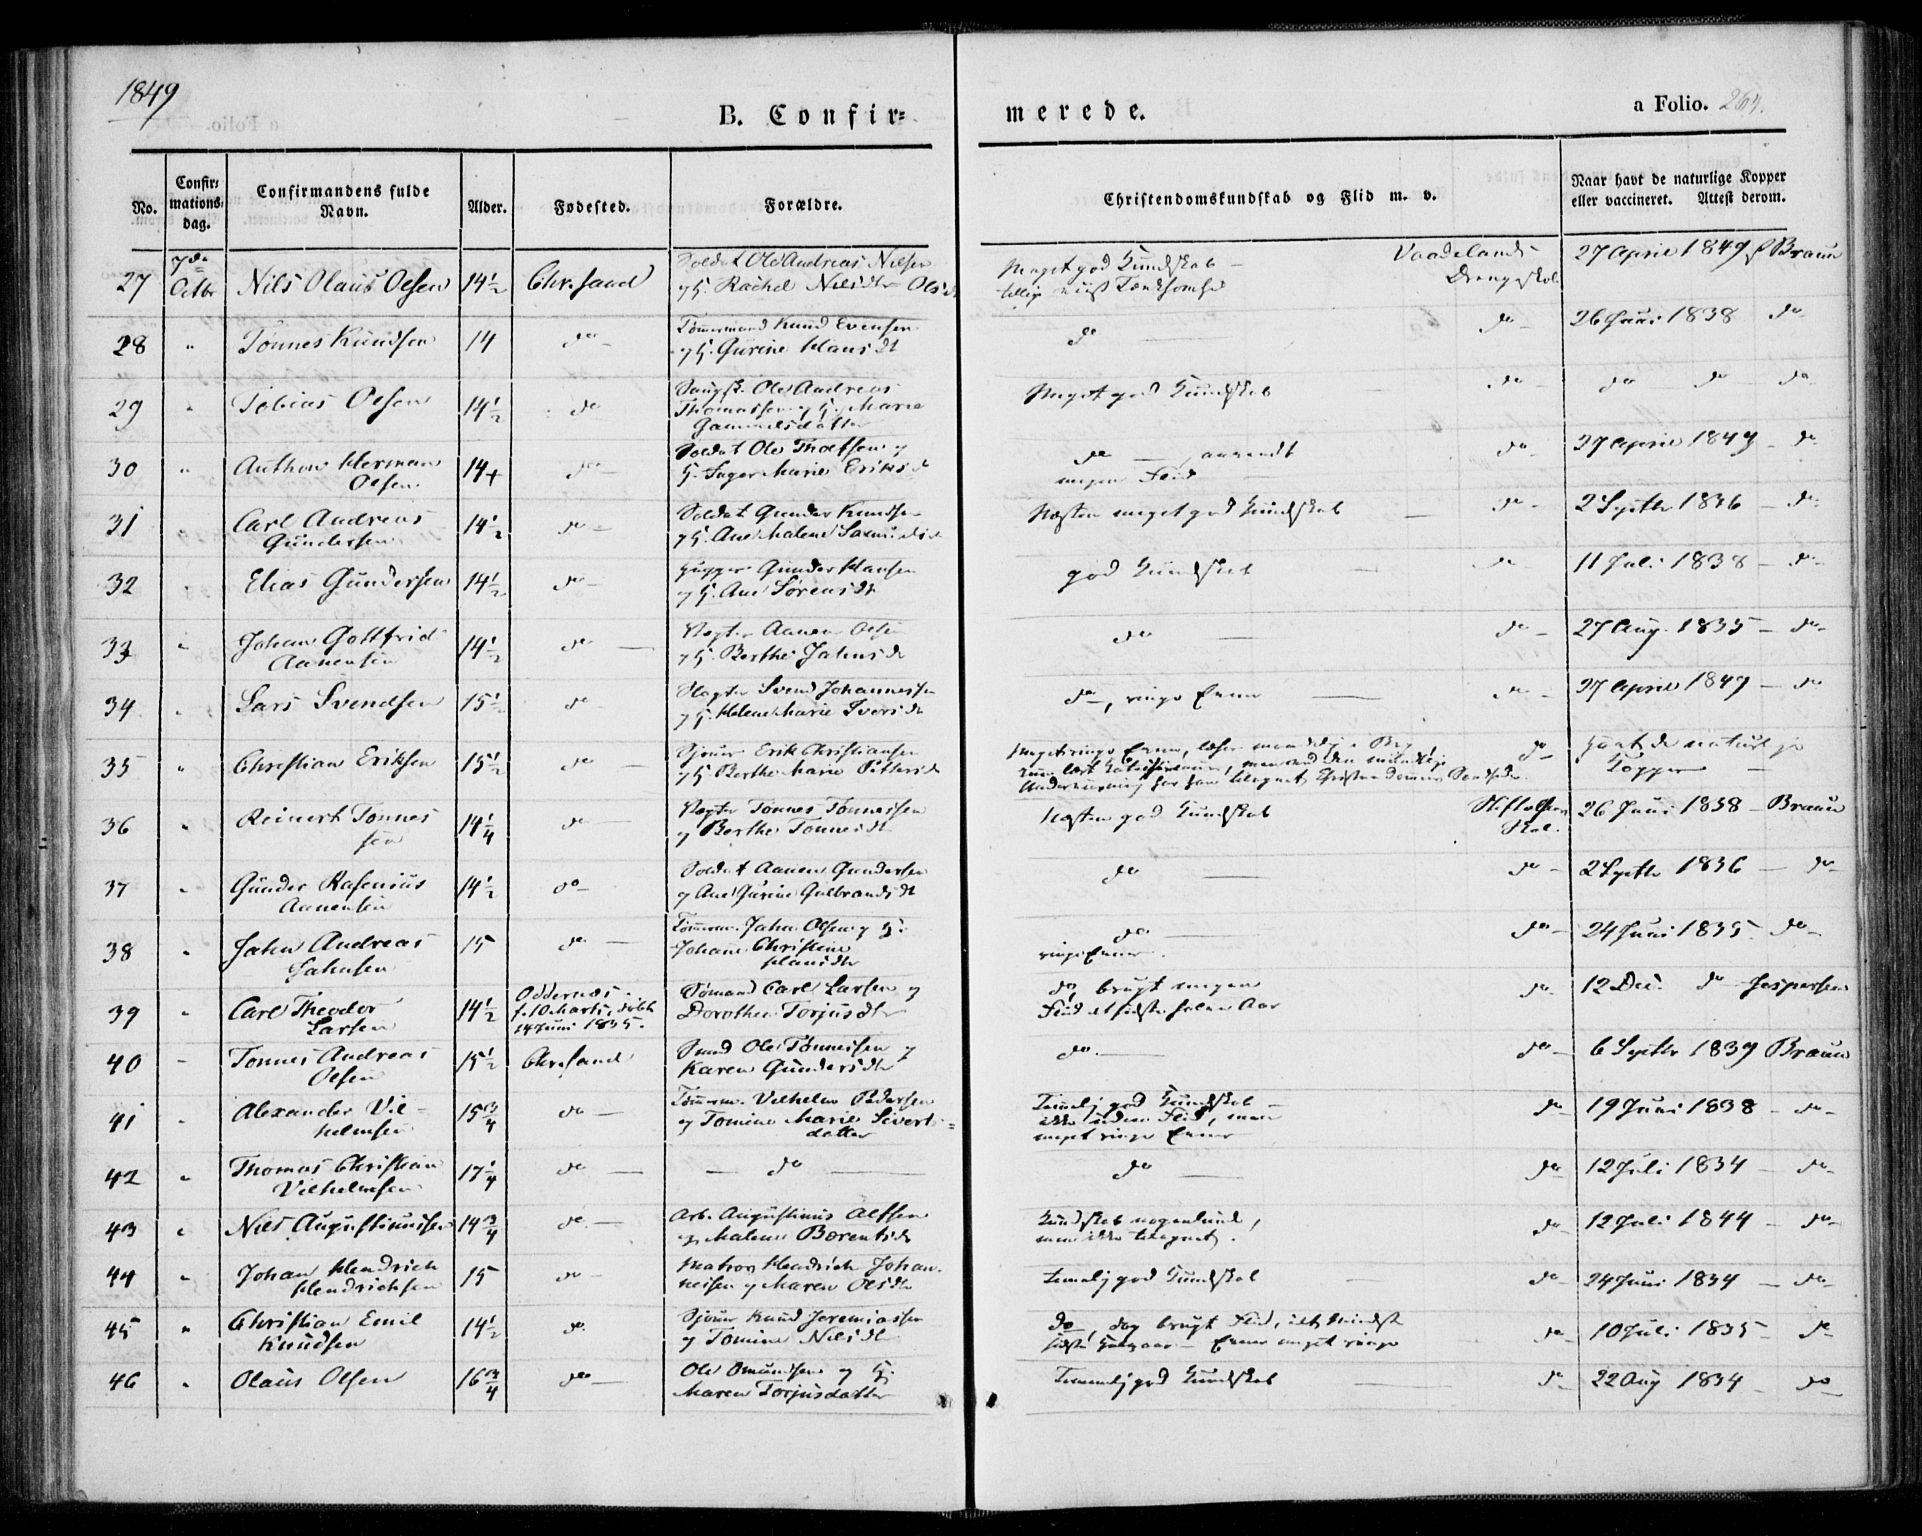 1849
B. Confir=
merede.
a Folio. 267.
No.
Confir=
mations=
dag.
Confirmandens fulde
Navn.
Alder.
Fødested.
Forældre.
Christendomskundskab og Flid m. v.
Naar havt de naturlige Kopper
eller vaccineret. Attest derom.
27 7de Octbr Nils Olaus Olsen 14½ Chr.sand
Soldat Ole Andreas Nilsen
og H. Rachel Nilsdtr
Meget god Kundskab
27 April 1849 Braun
28 " Tønnes Knudsen 14 do
Tømmermand Knud Evensen
og H. Gurine Hansdt
do do 26 Juni 1838 do
29 " Tobias Olsen 14½ do
Ole Andreas
Thomassen og H. Marie
Gammelsdatter
Meget god Kundskab do do do do
30 " Anthon Herman
Olsen 14+ do
Soldat Ole
H. Inger Marie Eriksd
do anvendt
megen Flid do 27 April 1849 do
31 Carl Andreas
Gundersen 14½ do
Soldat Gunder Knudsen
og H. Ane Malene
Næsten meget god Kundskab do 2 Septbr 1836 do
32 Elias Gundersen 14½ do
Gunder Hansen
og H. Ane Sørensdt
god Kundskab do 11 Juli 1838 do
33 " Johan Gottfried
Aanensen 14½ do
Vægter Aanen Olsen
og H. Berthe Jahnsd
do do 27 Aug. 1835 do
34 " Lars Svendsen 15½ do
Svend Johannessen
og H. Helene Marie Iversdt
do, ringe Evner do 27 April 1849 do
35 " Christian Eriksen 15½ do
Sjouer Erik Christiansen
og H. Berthe Marie Pettersd
Meget ringe Evner, do
havt de naturlige
Kopper
36 " Reinert Tønnes
sen 14¼ do
Vægter Tønnes Tønnessen
og Berthe Tønnesdt
Næsten god Kundskab
Skole 26 Juni 1838 Braun
37 " Gunder Rasmus
Aanensen 14½ do
Soldat Aanen Gundersen
og Ane Gurine Gulbrandsdt
do do 2 Septbr 1836 do
38 " Jahn Andreas
Jahnsen 15 do
Tømmerm. Jahn Olsen og H.
Johanne Christine
Hansdtr
do
ringe Evner. do 24 Juni 1835 do
39 " Carl Theodor
Larsen 14½
Oddernæs.
f. 10 Marts, døbt
14 Juni 1835.
Sømand Carl Larsen og
Dorothea Torjusdtr
do, brugt megen
Flid det sidste halve Aar
do 12 Dec. do Jespersen
40 Tønnes Andreas
Olsen 15½ Chr.sand
Smed Ole Tønnessen og
Karen Gundersdtr
do. do 6 Septbr 1839 Braun
41 Alexander Vil=
helmsen 15¾ do
Tømmerm. Vilhelm Pedersen
og Tomine Marie Sivert=
datter
Temmelig god Kundskab
ikke uden Flid, men
meget ringe Evner
do 19 Juni 1838 do
42 " Thomas Christian
Vilhelmsen 17¼ do do
do do 12 Juli 1834 do
43 " Nils Augustinussen 14¾ do
Arb. Augustinus Alfsen
og Malene Berentsdt
Kundskab nogenlunde,
men ikke tilegnet.
do 12 Juli 1844 do
44 " Johan Hendrich
Hendrichsen 15 do
Matros Hendrich Johan
nesen og Maren Olsdtr
temmelig god Kundskab do 24 Juni 1834 do
45 " Christian Emil
Knudsen 14½ do
Sjouer Knud Jeremiassen
og Tomine Nilsdtr
do, dog brugt Flid, i det mindste
sidste Halvaar - Evner meget ringe
do 10 Juli 1835 do
46 " Olaus Olsen 16¾ do
Ole Omundsen og H.
Maren Torjusdatter
Temmelig god Kundskab do 22 Aug 1834 do